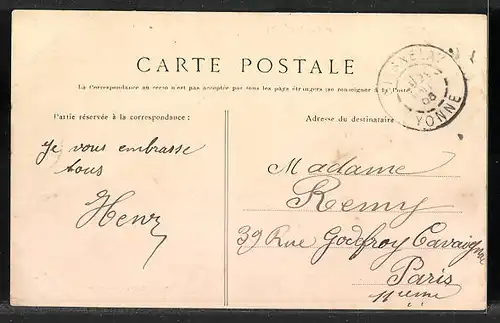 CARTE POSTALE
YONNE
La Correspondance au recto n'est pas acceptée par tous les pays étrangers (se renseigner à la Poste)
Partie réservée à la correspondance :
Adresse du destinataire
Je vous embrasse
tous
Henri
Madame
Remy
39 Rue Godefroy Cavaignac
Paris
11ième